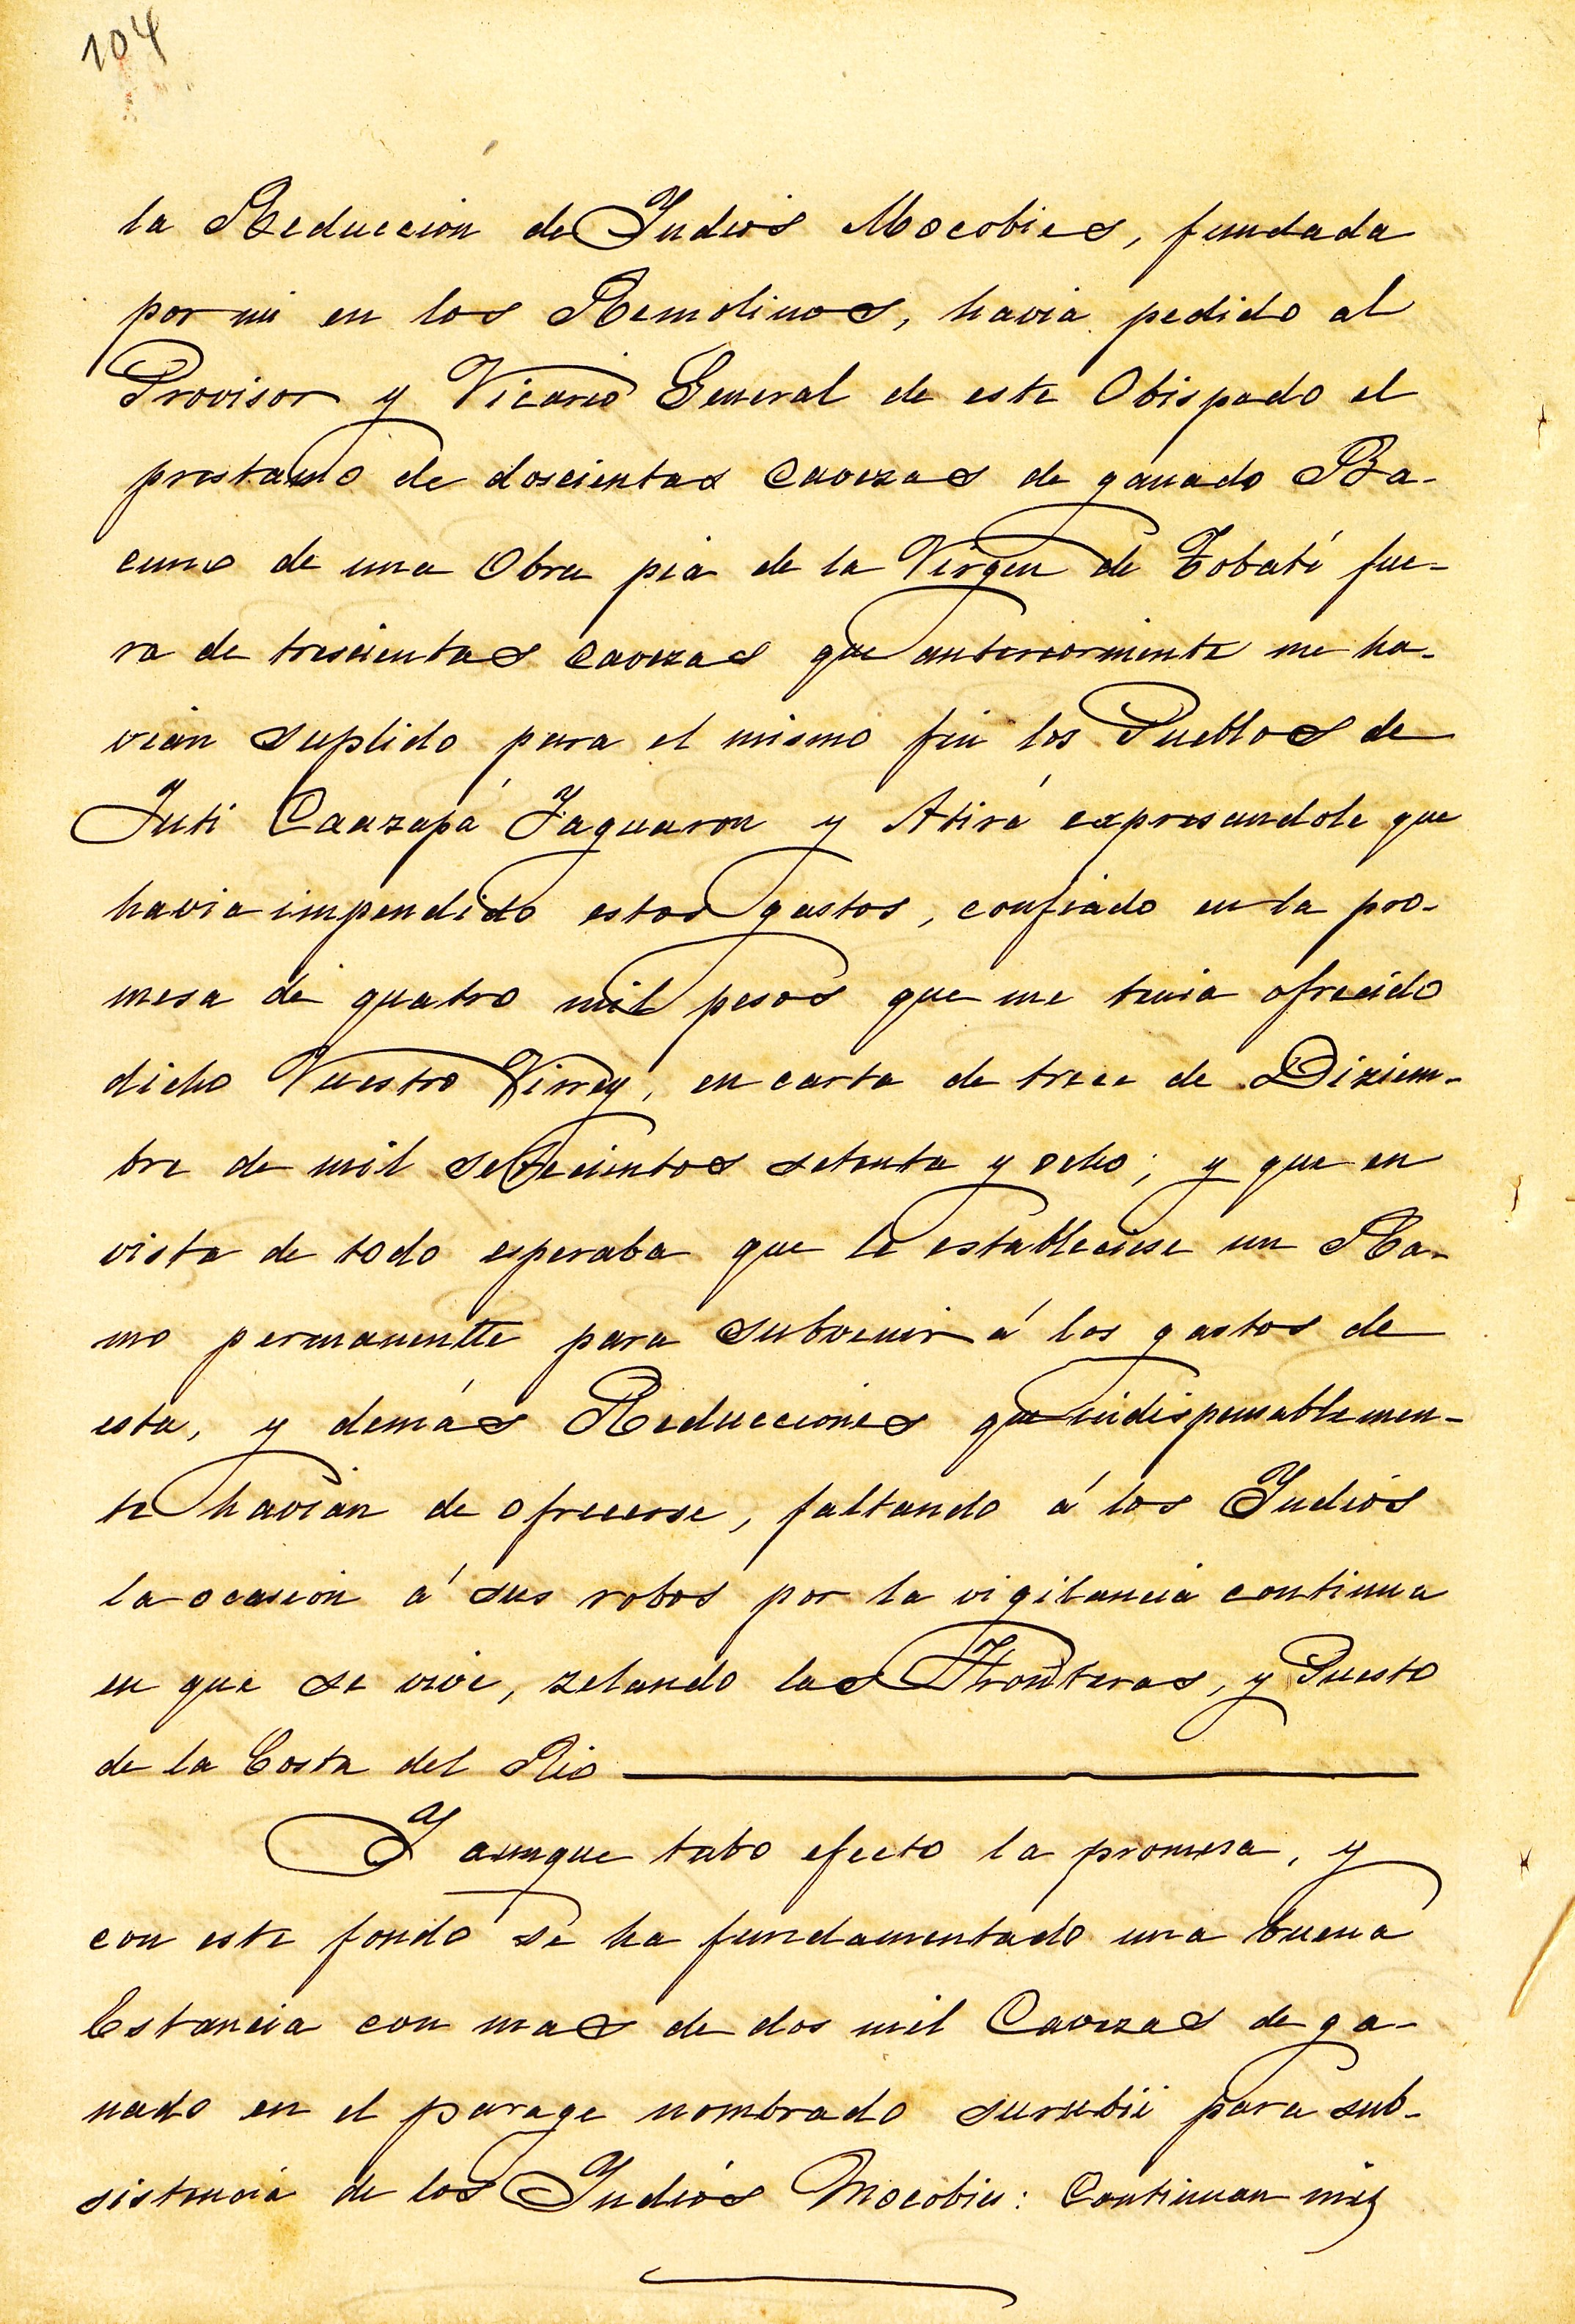 104
la Reduccion de Indios Mocobies, fundada
por mi en los Remolinos, havia pedido al
Provisor y Vicario General de este Obispado el
prestamo de doscientas Cavezas de ganado Ba-
cuno de una Obra pia de la Virgen de Tobatí fue-
ra de trescientas Cavezas que anteriormente me ha-
vian suplido para el mismo fin los Pueblos de
Iuti Caazapá Yaguaron y Atirá expresandole que
havia impendido estos gastos, confiado en la pro-
mesa de quatro mil pesos que me tenia ofrecido
dicho Vuestro Virrey, en carta de trece de Diziem-
bre de mil setecientos setenta y ocho; y que en
vista de todo esperaba que se estableciese un Ra-
mo permanentte para subvenir á los gastos de
esta, y demás Reducciones que indispensablemen-
te havian de ofrecerse, faltando á los Indios
la ocasion á sus robos por la vigilancia continua
en que se vive, zelando las Fronteras, y Puesto
de la Costa del Rio
Y aunque tubo efecto la promesa, y
con este fondo se ha fundamentado una buena
Estancia con mas de dos mil Cavezas de ga-
nado en el parage nombrado surubií para sub-
sistencia de los Indios Mocobies: Continuan mis